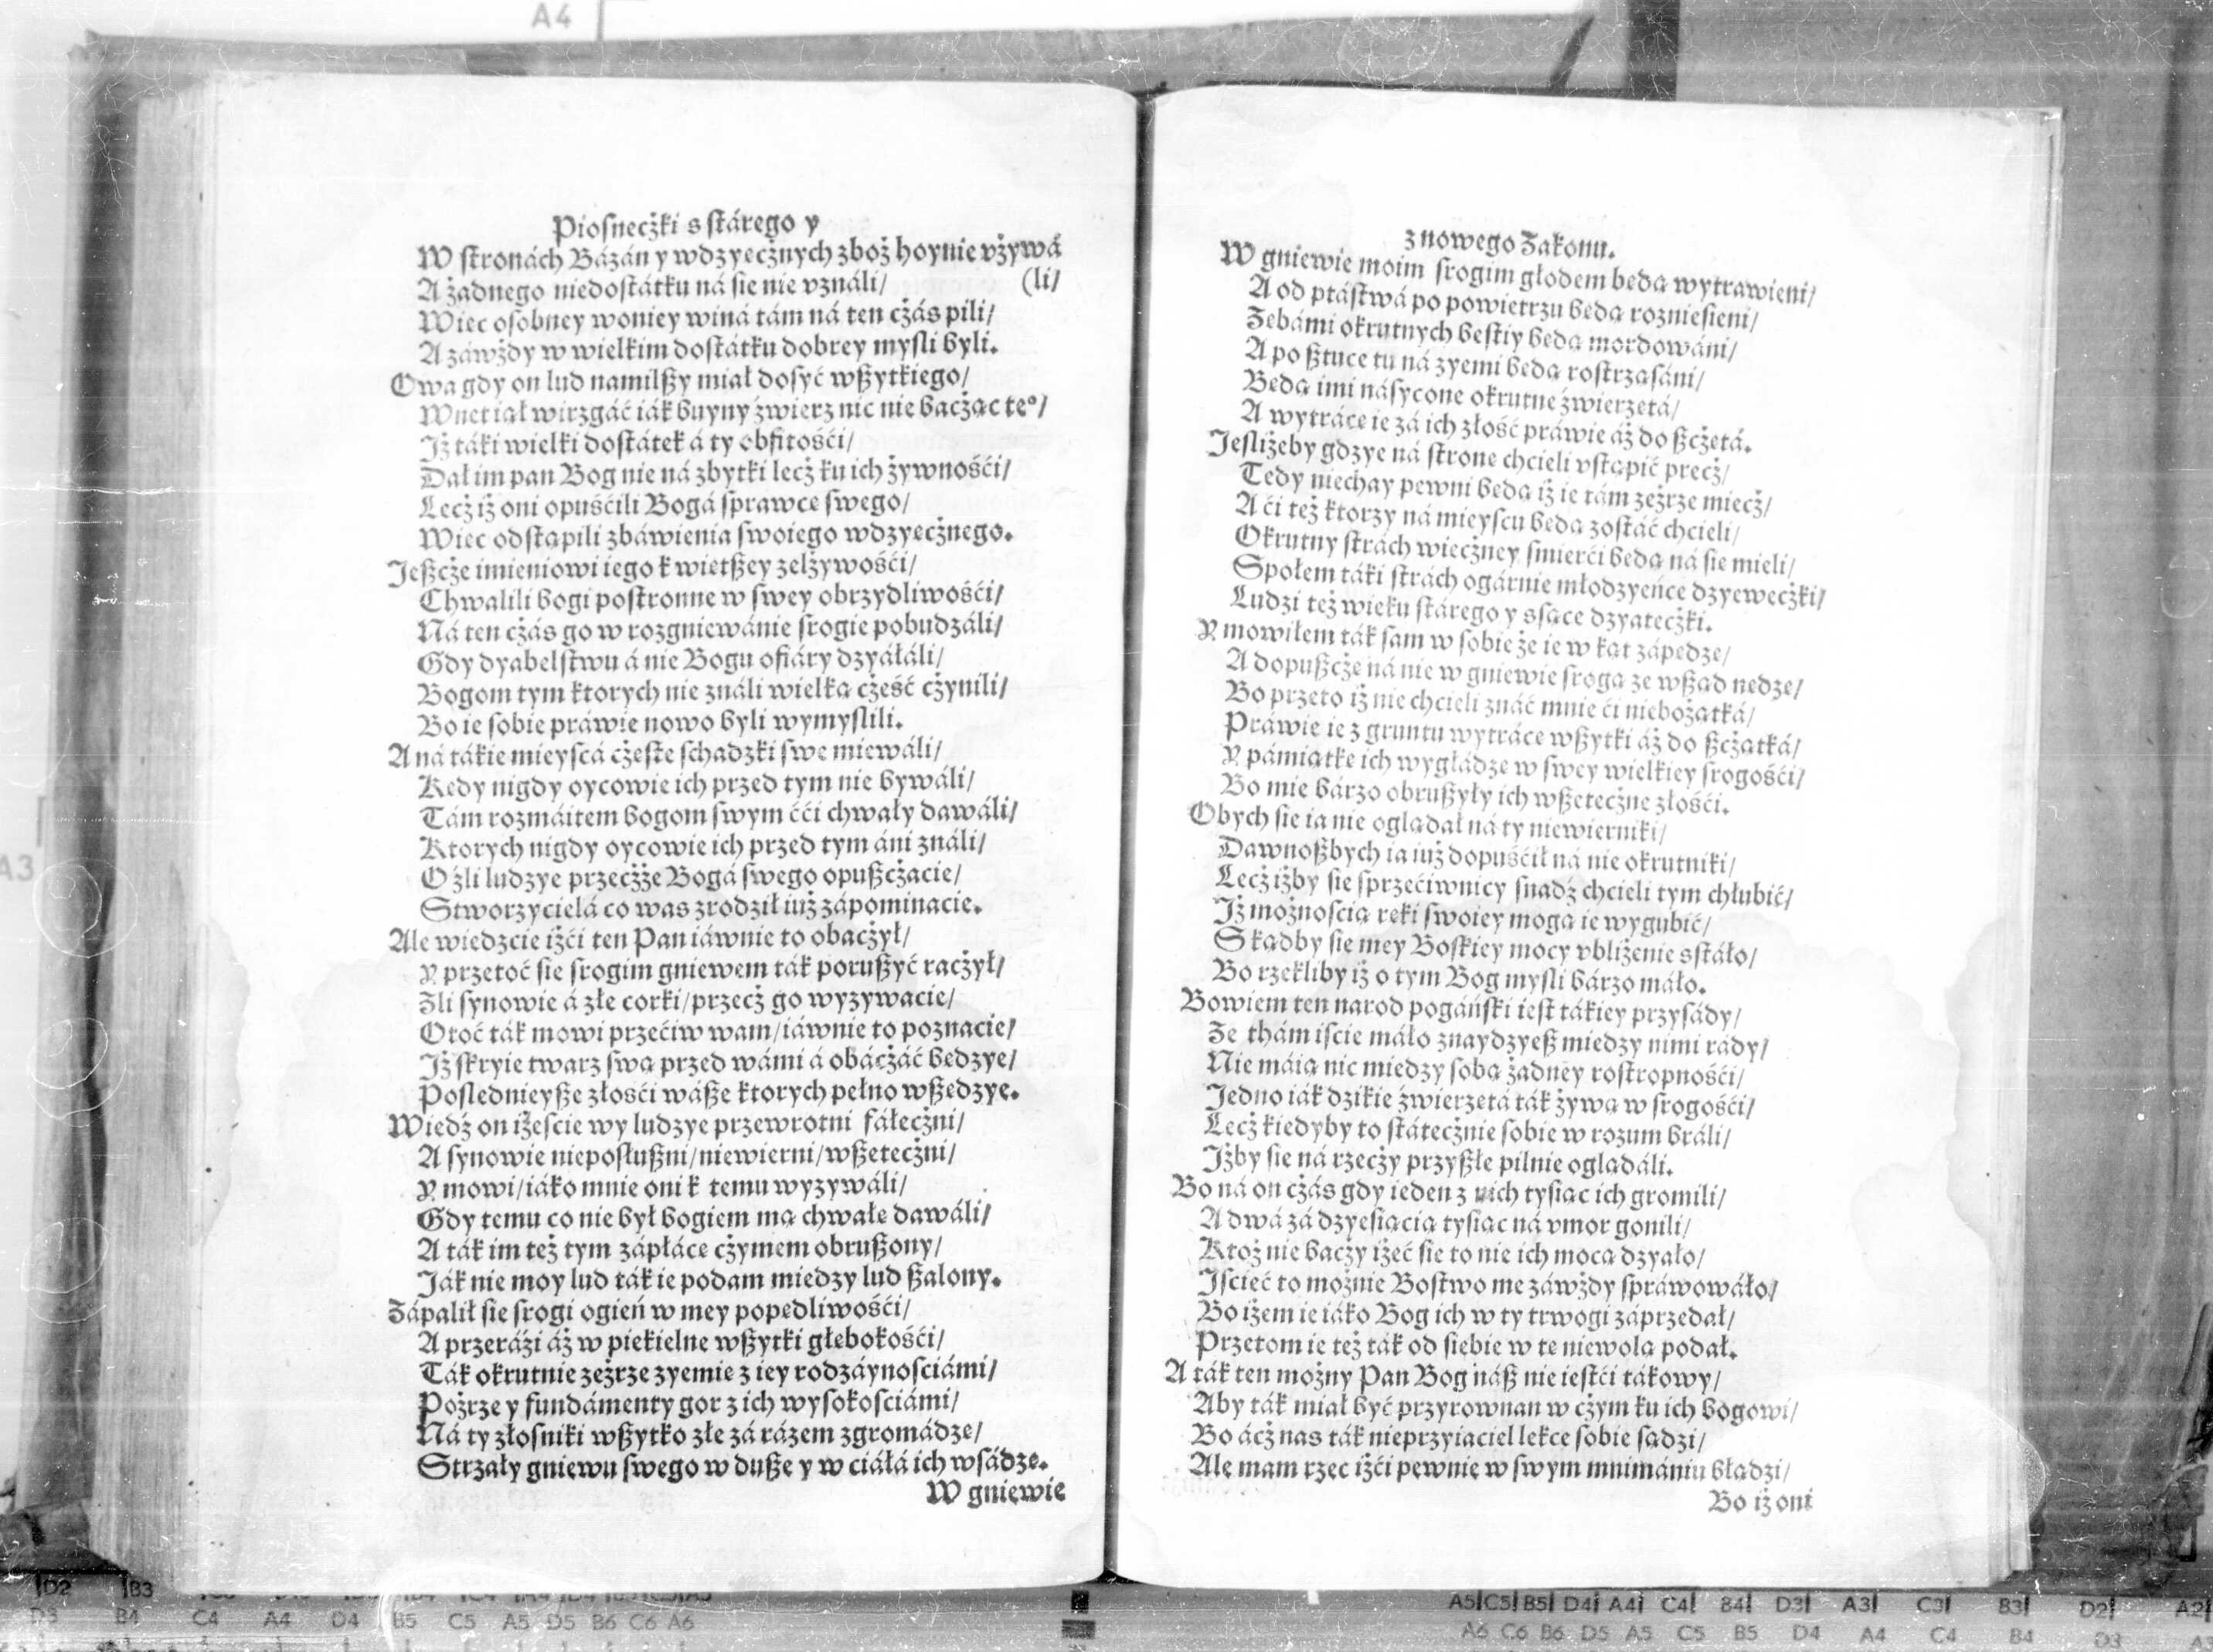 Piosnecżki s stárego y
W stronách Bázán y wdzyecżnych zboż hoynie vżywá
A żadnego niedostátku ná sie nie vználi/ (li/
Wiec osobney woniey winá tám ná ten cżás pili/
A záwżdy w wielkim dostátku dobrey mysli byli.
Owa gdy on lud namilßy miał dosyć wßytkiego/
Wnet iał wirzgáć iák buyny źwierz nic nie bacżąc te°/
Iż táki wielki dostátek á ty obfitośći/
Dał im pan Bog nie ná zbytki lecż ku ich żywnośći/
Lecż iż oni opuśćili Bogá sprawce swego/
Wiec odstąpili zbáwienia swoiego wdzyecżnego.
Jeßcże imieniowi iego k wietßey zelżywośći/
Chwalili bogi postronne w swey obrzydliwośći/
Ná ten cżás go w rozgniewánie srogie pobudzáli/
Gdy dyabelstwu á nie Bogu ofiáry dzyáłáli/
Bogom tym ktorych nie ználi wielką cżeść cżynili/
Bo ie sobie práwie nowo byli wymyslili.
A ná tákie mieyscá cżeste schadzki swe miewáli/
Kedy nigdy oycowie ich przed tym nie bywáli/
Tám rozmáitem bogom swym ććі chwały dawáli/
Ktorych nigdy oycowie ich przed tym áni ználi/
O źli ludzye przecżże Bogá swego opußcżacie/
Stworzycielá co was zrodził iuż zápominacie.
Ale wiedzcie iżći ten Pan iáwnie to obacżył/
Y przetoć sie srogim gniewem ták porußyć racżył/
Zli synowie á złe corki/przecż go wyzywacie/
Otoć ták mowi przećiw wam/iáwnie to poznacie/
Iż skryie twarz swą przed wámi á obácżáć bedzye/
Poslednieyße złosći wáße ktorych pełno wßedzye.
Wiedz on iżescie wy ludzye przewrotni fáłecżni/
A synowie nieposłußni/niewierni/wßetecżni/
Y mowi/iáko mnie oni k temu wyzywáli/
Gdy temu co nie był bogiem mą chwałe dawáli/
A ták im też tym zápłáce cżymem obrußony/
Ják nie moy lud ták ie podam miedzy lud ßalony.
Zápalił sie srogi ogień w mey popedliwośći/
A przeráźi áż w piekielne wßytki głebokośći/
Ták okrutnie zeżrze zyemie z iey rodzáynosciámi/
Pożrze y fundámenty gor z ich wysokosciámi/
Ná ty złosniki wßytko złe zá rázem zgromádze/
Strzały gniewu swego w duße y w ciáłá ich wsádze.
W gniewie
z nowego Zakonu.
W gniewie moim srogim głodem bedą wytrawieni/
A od ptástwá po powietrzu bedą rozniesieni/
Zebámi okrutnych bestiy bedą mordowáni/
A po ßtuce tu ná zyemi bedą rostrzasáni/
Bedą imi násycone okrutne źwierzetá/
A wytráce ie zá ich złość práwie áż do ßcżetá.
Jesliżeby gdzye ná strone chcieli vstąpić precż/
Tedy niechay pewni bedą iż ie tám zeżrze miecż/
A ći też ktorzy ná mieyscu bedą zostáć chcieli/
Okrutny strách wiecżney smierći bedą ná sie mieli/
Społem táki strách ogárnie młodzyeńce dzyewecżki/
Ludzi też wieku stárego y ssące dzyatecżki.
Y mowiłem ták sam w sobie że ie w kąt zápedze/
A dopußcże ná nie w gniewie srogą ze wßad nedze/
Bo przeto iż nie chcieli znáć mnie ći niebożątká/
Práwie ie z gruntu wytráce wßytki áż do ßcżątká/
Y pámiątke ich wygłádze w swey wielkiey srogośći/
Bo mie bárzo obrußyły ich wßetecżne złośći.
Obych sie ia nie oglądał ná ty niewierniki/
Dawnoßbych ia iuż dopuśćił ná nie okrutniki/
Lecż iżby sie sprzećiwnicy snadź chcieli tym chłubić/
Iż możnoscią reki swoiey mogą ie wygubić/
Skądby sie mey Boskiey mocy vbliżenie sstáło/
Bo rzekliby iż o tym Bog mysli bárzo máło.
Bowiem ten narod pogáński iest tákiey przysády/
Ze thám iscie máło znaydzyeß miedzy nimi rády/
Nie máią nic miedzy sobą żadney rostropnośći/
Jedno iák dzikie źwierzetá ták żywą w srogośći/
Lecż kiedyby to státecżnie sobie w rozum bráli/
Iżby sie ná rzecży przyßłe pilnie oglądáli.
Bo ná on cżás gdy ieden z nich tysiąc ich gromili/
A dwá zá dzyesiącią tysiąc ná vmor gonili/
Ktoż nie bacży iżeć sie to nie ich mocą dzyało/
Iscieć to możnie Bostwo me záwżdy spráwowáło/
Bo iżem ie iáko Bog ich w ty trwogi záprzedał/
Przetom ie też ták od siebie w te niewolą podał.
A ták ten możny Pan Bog náß nie iestći tákowy/
Aby ták miał być przyrownan w cżym ku ich bogowi/
Bo ácż nas ták nieprzyiaciel lekce sobie sądzi/
Ale mam rzec iżći pewnie w swym mnimániu błądzi/
Bo iż oni